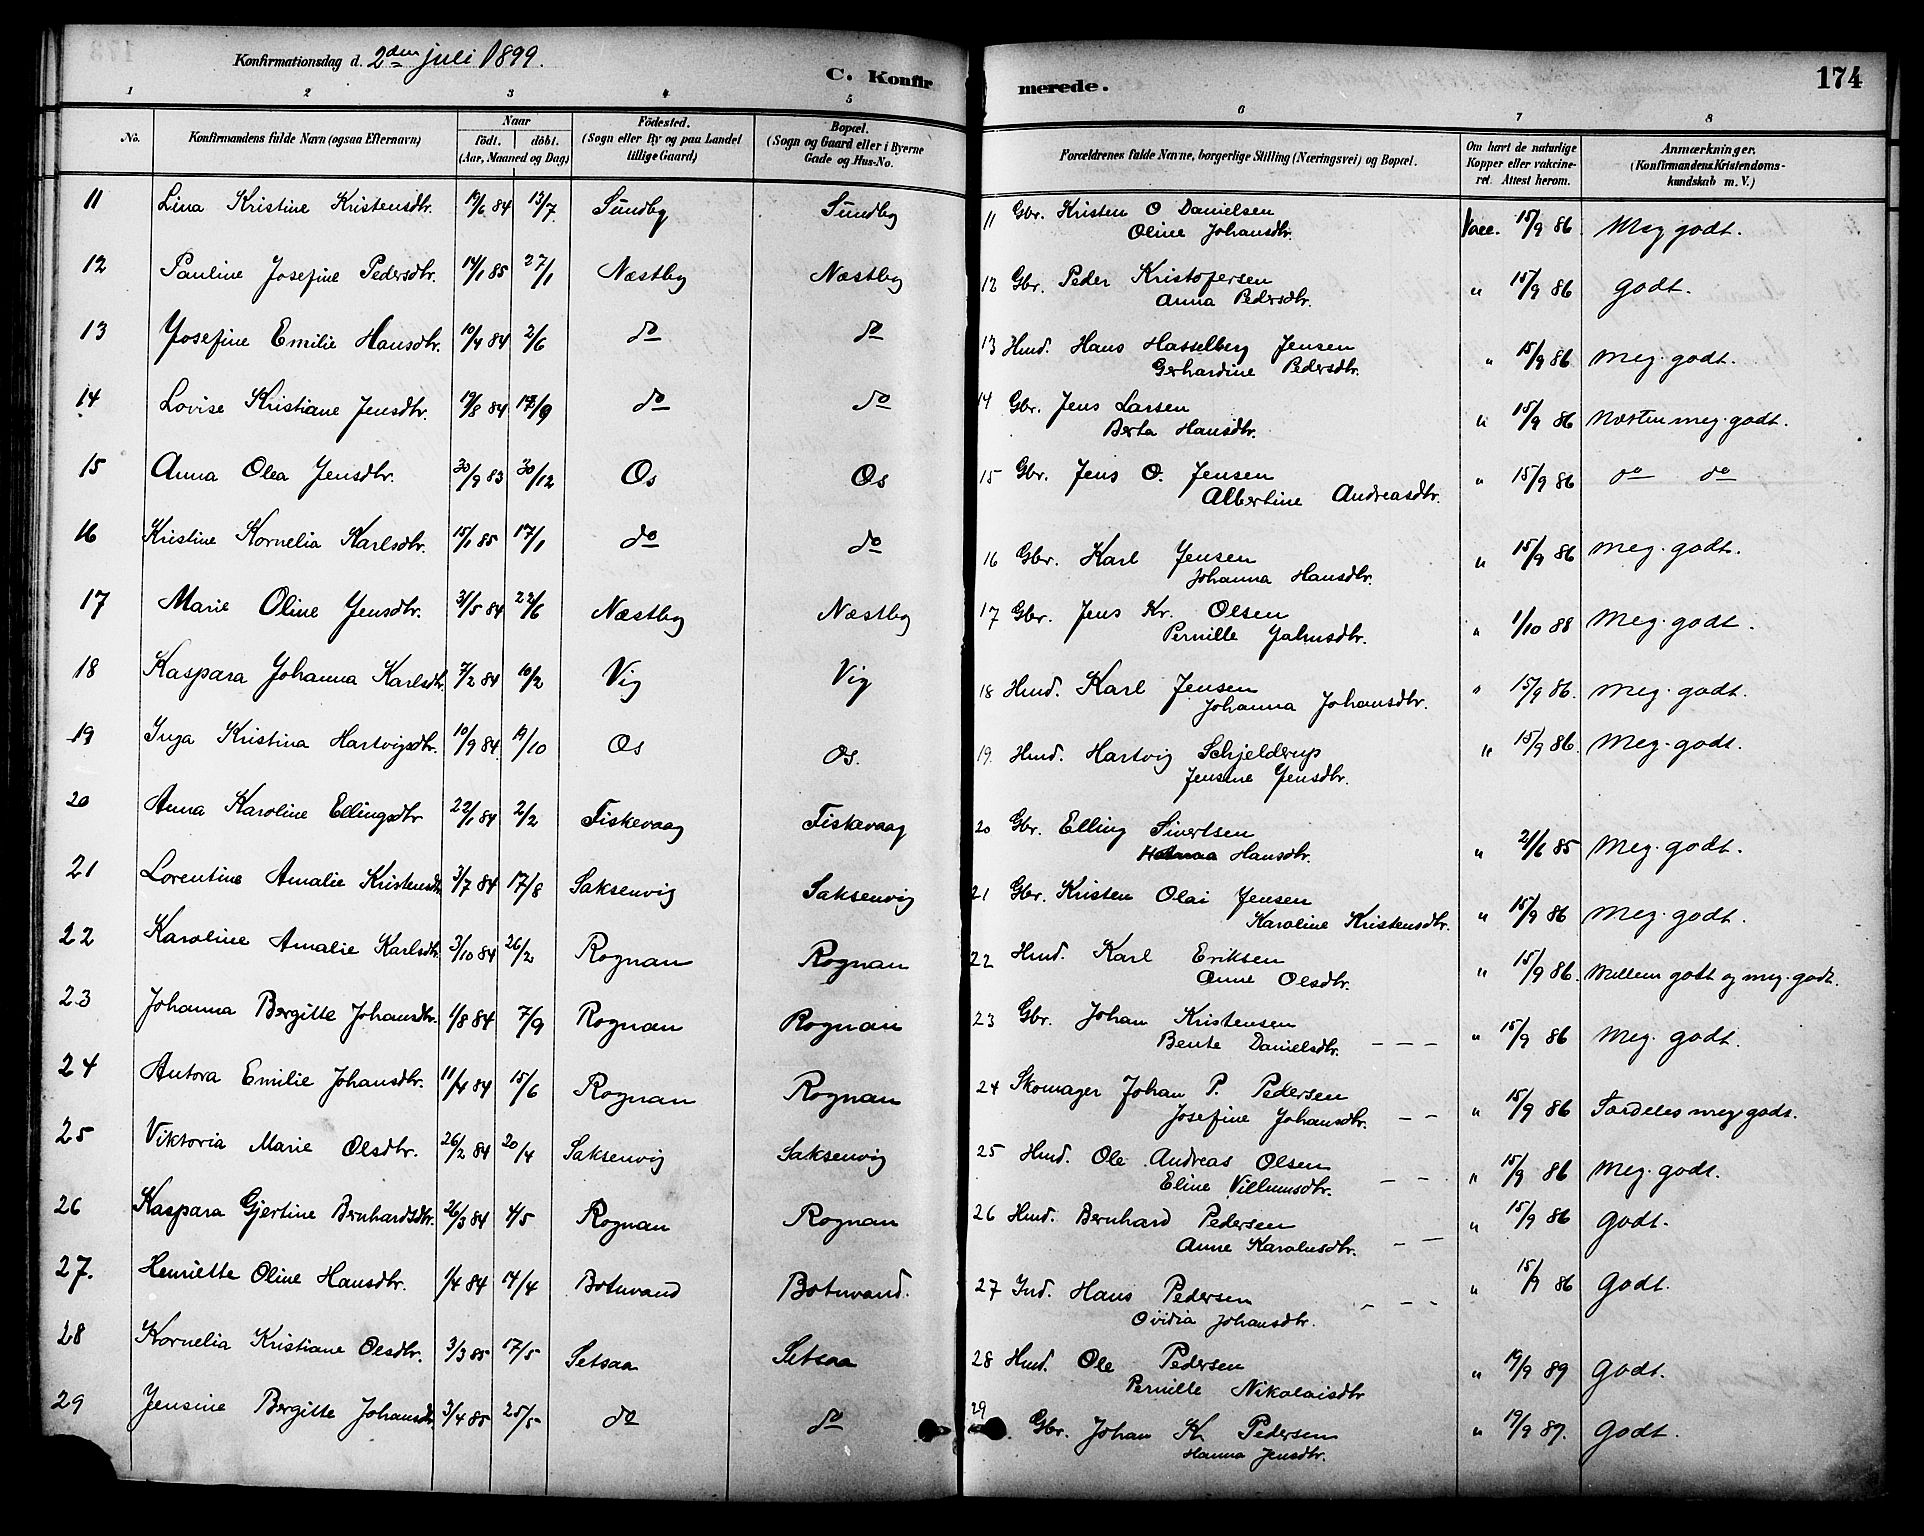 Konfirmationsdag d. 2den juli 1899.
C. Konfirmerede.
174
1 2 3 4 5 6 7 8
No.
Konfirmandens fulde Navn (ogsaa Efternavn)
Naar
födt. döbt.
(Aar, Maaned og Dag)
Födested.
(Sogn eller By og paa Landet
tillige Gaard)
Bopæl.
(Sogn og Gaard eller i Byerne
Gade og Hus-No.
Forældrenes fulde Navne, borgerlige Stilling (Næringsvei) og Bopæl.
Om havt de naturlige
Kopper eller vakcine-
ret. Attest herom.
Anmærkninger.
(Konfirmandens Kristendoms-
kundskab m. V.)
11 Lina Kristine Kristensdtr. 19/6 84 13/7 Sundby Sundby 11 Gbr. Kristen O Danielsen Vacc. 15/9 86 Meg godt.
Oline Johansdtr.
12 Pauline Josefine Pedersdtr. 14/1 85 27/1 Næstby Næstby 12 Gbr. Peder Kristofersen " 15/9 86 godt.
Anna Pedersdtr.
13 Josefine Emilie Hansdtr. 10/4 84 2/6 do do 13 Hmd. Hans Hasselberg Jensen " 15/9 86 Meg. godt.
Gerhardine Pedersdtr.
14 Lovise Kristiane Jensdtr. 19/8 84 do do 14 Gbr. Jens Larsen " 15/9 86 Næsten meg. godt.
Berta Hansdtr.
15 Anna Olea Jensdtr. 30/9 83 30/12 Os Os 15 Gbr. Jens O. Jensen " 15/9 86 do do
Albertine Andreasdtr.
16 Kristine Kornelia Karlsdtr. 15/1 85 17/1 do do 16 Gbr. Karl Jensen " 15/9 86 Meg. godt.
Johanna Hansdtr.
17 Marie Oline Jensdtr. 31/5 84 22/6 Næstby Næstby 17 Gbr. Jens Kr. Olsen " 1/10 88 Meg. godt.
Pernille Jahnsdtr.
18 Kaspara Johanna Karlsdtr. 7/2 84 10/2 Vig Vig 18 Hmd. Karl Jensen " 15/9 86. Meg. godt.
Johanna Johansdtr.
19 Inga Kristina Hartvigsdtr. 10/9 84 19/10 Os Os. 19. Hmd. Hartvig Schjelderup " 15/9 86. Meg. godt.
Jensine Jensdtr.
20 Anna Karoline Ellingsdtr 22/1 84 2/2 Fiskevaag Fiskevaag 20 Gbr. Elling Sivertsen " 21/6 85 Meg. godt.
Hansdtr.
21 Lorentine Amalie Kristensdtr. 3/7 84 17/8 Saksenvig Saksenvig 21 Gbr. Kristen Olai Jensen " 15/9 86 Meg. godt.
Karoline Kristensdtr.
22 Karoline Amalie Karlsdtr. 3/10 84 26/2 Rognan Rognan 22 Hmd. Karl Eriksen " 15/9 86. Mellem godt og meg. godt.
Anne Olsdtr.
23 Johanna Bergitte Johansdtr. 1/8 84 7/9 Rognan Rognan 23 Gbr. Johan Kristensen " 15/9 86 Meg. godt.
Bente Danielsdtr. – – –
24 Antora Emilie Johansdtr. 11/4 84 15/6 Rognan Rognan 24 Skomager Johan P. Pedersen " 15/9 86 Fordeles meg. godt.
Josefine Johansdtr. – –
25 Viktoria Marie Olsdtr. 26/2 84 20/4 Saksenvig Saksenvig 25 Hmd. Ole Andreas Olsen " 15/9 86 Meg. godt.
Eline Villumsdtr. – –
26 Kaspara Gjertine Bernhardsdtr. 26/3 84 4/5 Rognan Rognan 26 Hmd. Bernhard Pedersen " 15/9 86 Godt.
Anne Karolusdtr. – –
27. Henriette Oline Hansdtr. 1/4 84 14/4 Botnvand Botnvand. 27 Ind. Hans Pedersen " 15/9 86 Godt.
Ovidia Johansdtr.
28 Kornelia Kristiane Olsdtr. 3/3 85 17/5 Setsaa Setsaa 28 Hmd. Ole Pedersen " 19/9 89 Godt.
Pernille Nikolaisdtr
29 Jensine Bergitte Johansdtr. 3/4 85 25/5 do do 29 Gbr. Johan K. Pedersen " 19/9 87. Godt.
Hanna Jensdtr.